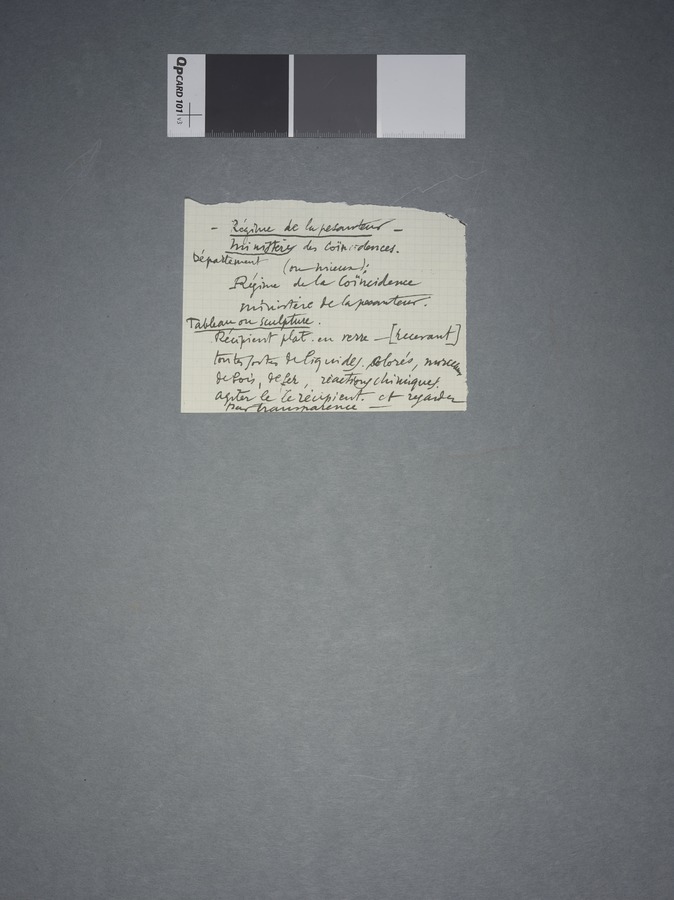 QPCARD 101 v3
- Régime de la pesanteur -
Ministère des coïncidences.
Département
(ou mieux):
Régime de la Coïncidence
Ministère de la pesanteur.
Tableau ou sculpture.
Récipient plat. en verre - [recevant]
toutes sortes de liquides. colorés, morceaux
de bois, de fer, réactions chimiques.
agiter le le récipient. et regarder
par transparence -